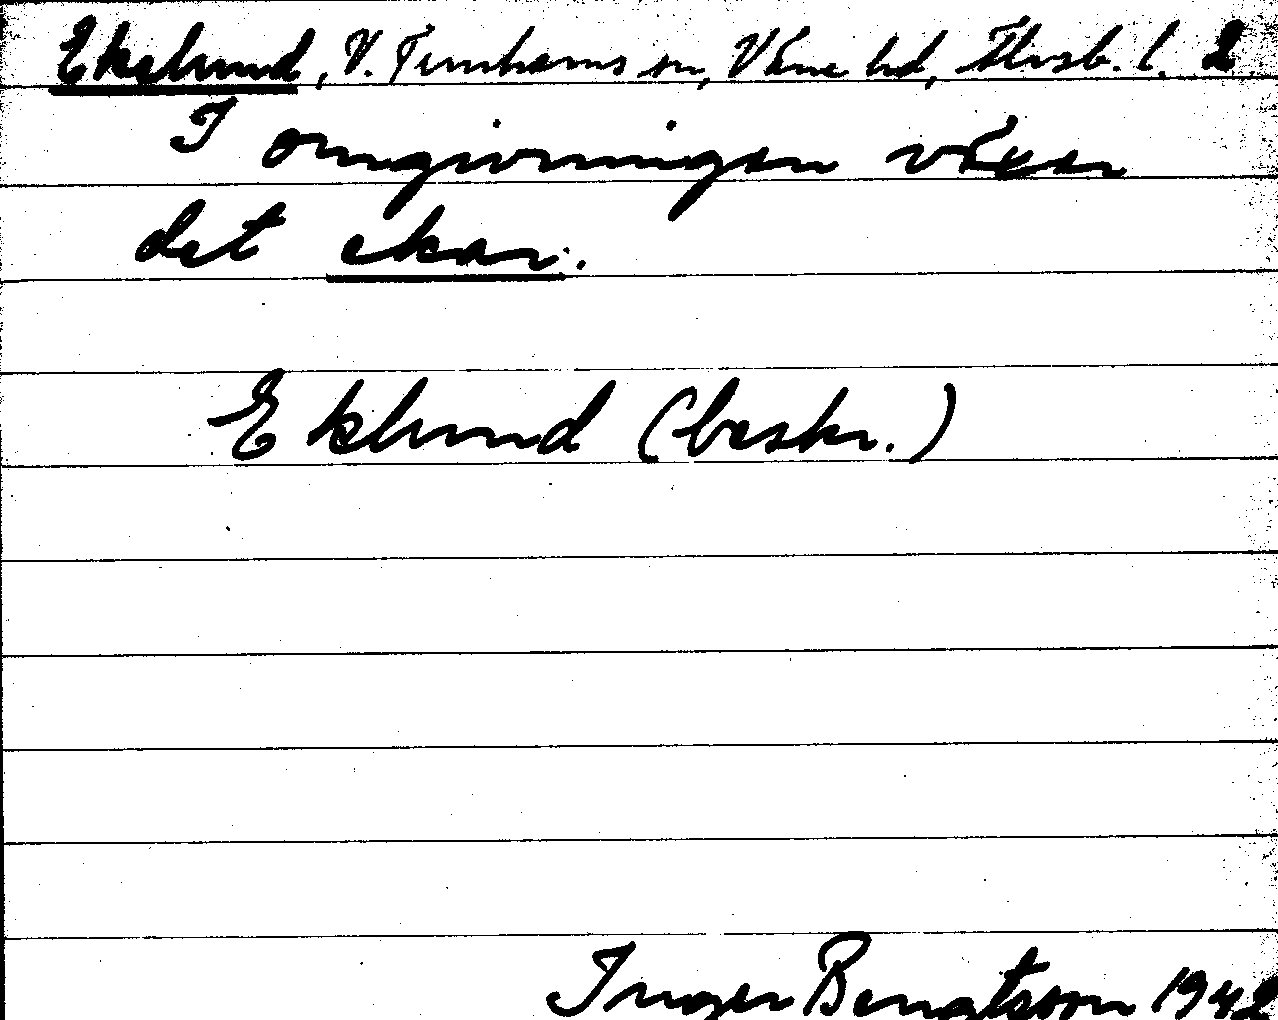 Ekelund, V. Tunhems sn, Väne hd, Älvsb. l. 2
I omgivningen växer
det ekar.
Eklund (beskr.)
Inger Bengtsson 1942